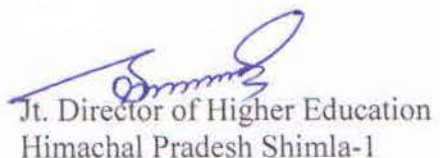 Jt. Director of Higher Education
Himachal Pradesh Shimla-1